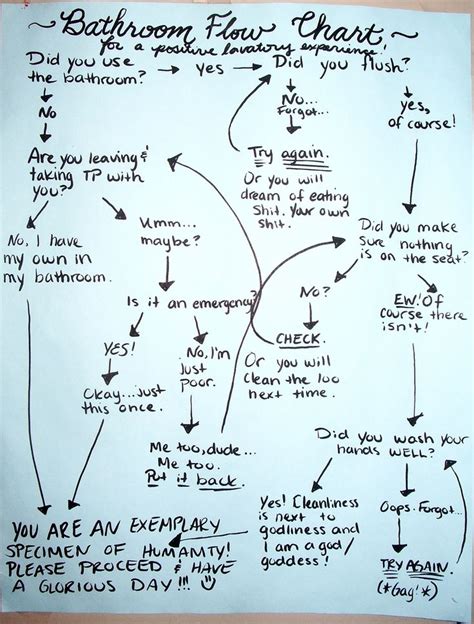 ~ Bathroom Flow Chart ~
for a positive lavatory experience!
Did you use
the bathroom?
Yes
Did you flush?
No
No...
Forgot...
Yes,
of course!
Try again.
Or you will
dream of eating
shit. Your own
shit.
Are you leaving &
taking TP with
you?
No, I have
my own in
my bathroom.
Umm...
maybe?
Did you make
sure nothing
is on the seat?
Is it an emergency?
No?
EW! Of
course there
isn't!
YES!
No, I'm
just
poor.
CHECK.
Or you will
clean the loo
next time.
Okay...just
this once.
Me too, dude...
Me too.
Put it back.
Did you wash your
hands WELL?
Yes! Cleanliness
is next to
godliness and
I am a god/
goddess!
Oops. Forgot...
TRY AGAIN.
(*Gag!*)
YOU ARE AN EXEMPLARY
SPECIMEN OF HUMAMTY!
PLEASE PROCEED & HAVE
A GLORIOUS DAY!!!